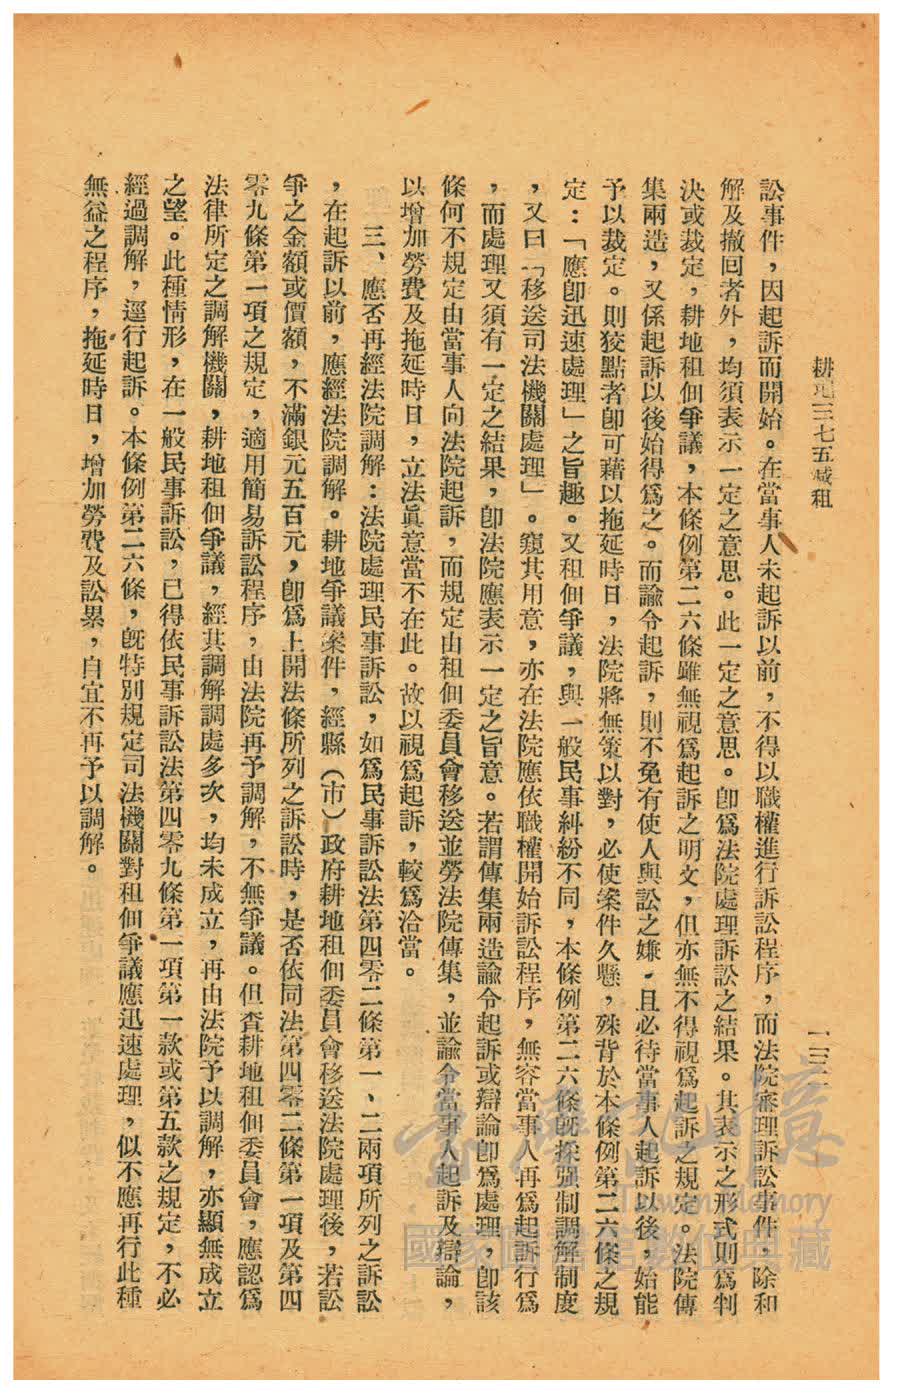 耕地三七五減租
一三二
訟事件，因起訴而開始。在當事人未起訴以前，不得以職權進行訴訟程序，而法院審理訴訟事件，除和
解及撤回者外，均須表示一定之意思。此一定之意思。卽爲法院處理訴訟之結果。其表示之形式則爲判
決或裁定，耕地租佃爭議，本條例第二六條雖無視爲起訴之明文，但亦無不得視爲起訴之規定。法院傳
集兩造，又係起訴以後始得爲之。而諭令起訴，則不免有使人與訟之嫌，且必待當事人起訴以後，始能
予以裁定。則狡黠者卽可藉以拖延時日，法院將無策以對，必使案件久懸，殊背於本條例第二六條之規
定：「應卽迅速處理」之旨趣。又租佃爭議，與一般民事糾紛不同，本條例第二六條旣採强制調解制度
，又曰「移送司法機關處理」。窺其用意，亦在法院應依職權開始訴訟程序，無容當事人再爲起訴行爲
，而處理又須有一定之結果，卽法院應表示一定之旨意。若謂傳集兩造諭令起訴或辯論卽爲處理，卽該
條何不規定由當事人向法院起訴，而規定由租佃委員會移送並勞法院傳集，並諭令當事人起訴及辯論，
以增加勞費及拖延時日，立法眞意當不在此。故以視爲起訴，較爲洽當。
三、應否再經法院調解：法院處理民事訴訟，如爲民事訴訟法第四零二條第一、二兩項所列之訴訟
，在起訴以前，應經法院調解。耕地爭議案件，經縣（市）政府耕地租佃委員會移送法院處理後，若訟
爭之金額或價額，不滿銀元五百元，卽爲上開法條所列之訴訟時，是否依同法第四零二條第一項及第四
零九條第一項之規定，適用簡易訴訟程序，由法院再予調解，不無爭議。但査耕地租佃委員會，應認爲
法律所定之調解機關，耕地租佃爭議，經其調解調處多次，均未成立，再由法院予以調解，亦顯無成立
之望。此種情形，在一般民事訴訟，已得依民事訴訟法第四零九條第一項第一款或第五款之規定，不必
經過調解，逕行起訴。本條例第二六條，旣特別規定司法機關對租佃爭議應迅速處理，似不應再行此種
無益之程序，拖延時日，增加勞費及訟累，自宜不再予以調解。
臺灣記憶
Taiwan Memory
國家圖書館數位典藏